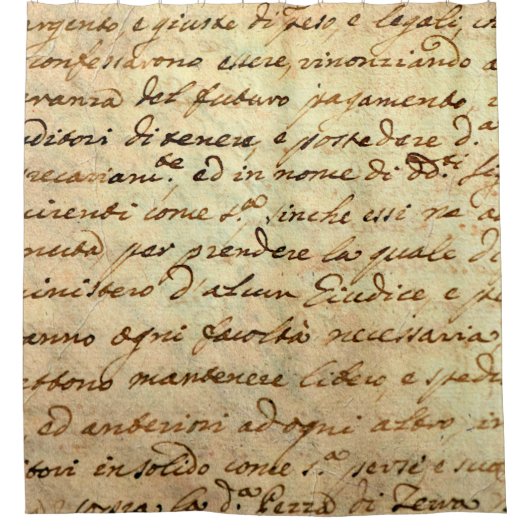 argento e giuste di Peso, e legali, co
confessarono essere, rinonziando a
eranza del futuro pagamento,
ditori di tenere, e possedere d.ª
recariam.te, ed in nome di dd.ti Sig
cirenti come s.ª sinche essi ne a
nuta per prendere la quale di
ministero d'alcun Giudice, e po
anno ogni facoltà necessaria
ettono mantenere libero, e spedi
, ed anteriori ad ogni altro, in
itori in solido come s.ª per se e suoi
sopra la d.ª Pezza di Terra